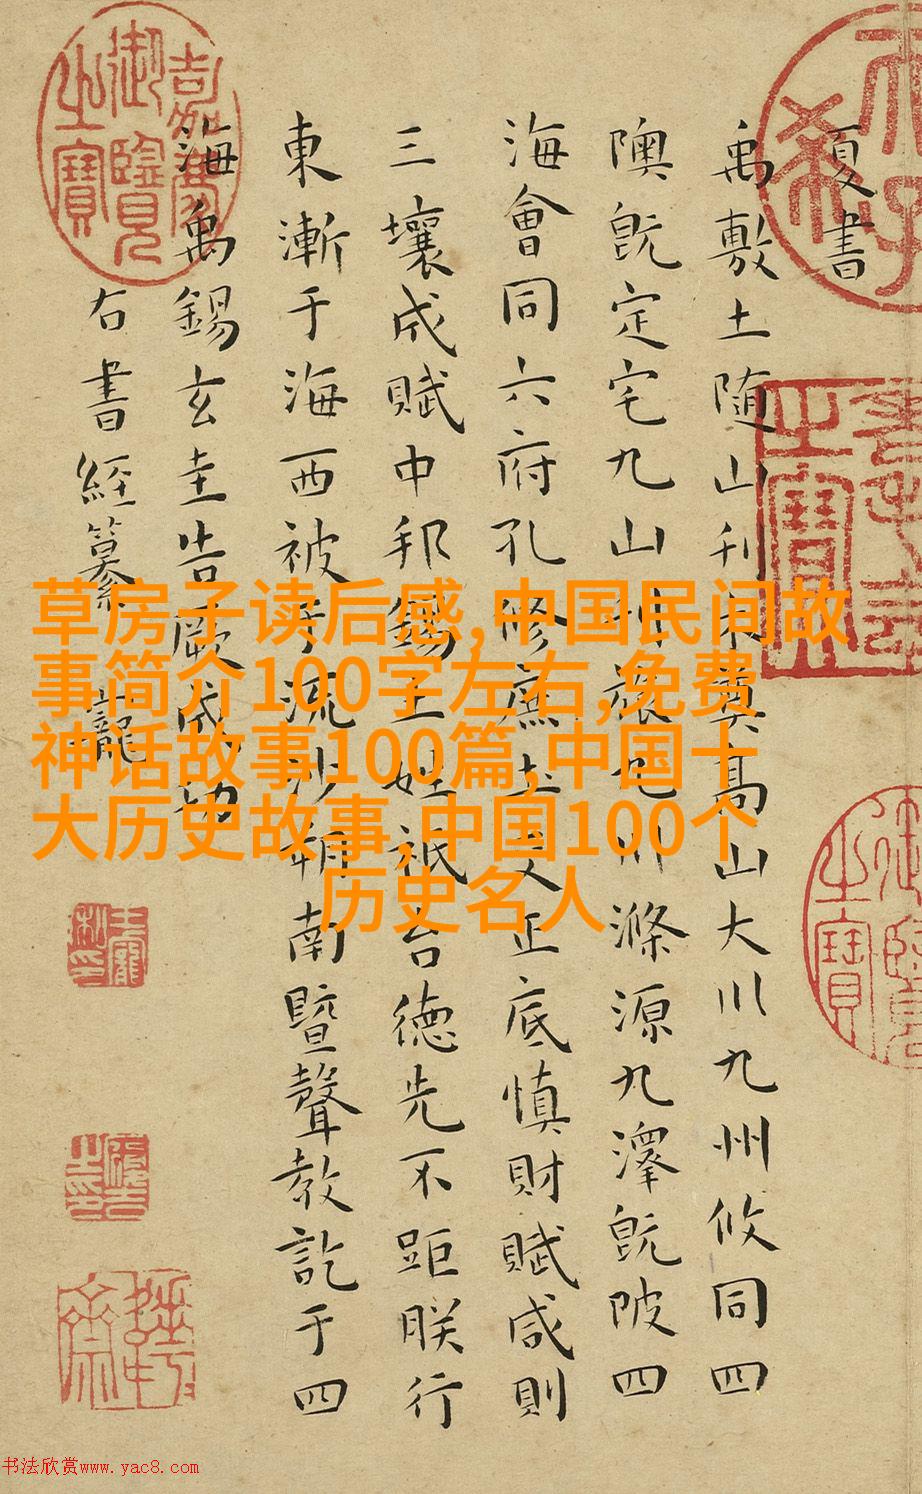 夏書
禹敷土随山刋木奠髙山大川九州攸同四
隩既定宅九山刋旅九川滌源九澤既陂四
海會同六府孔修庶土交正底慎財賦咸則
三壤成賦中邦錫土姓祗台德先不距朕行
東漸于海西被于流沙朔南暨聲教訖于四
海禹錫玄圭告厥成功
右書經纂 寵
嘉慶御覽之寶
草房子读后感,中国民间故
事简介100字左右,免费
神话故事100篇,中国十
大历史故事,中国100个
历史名人
书法欣赏www.yac8.com